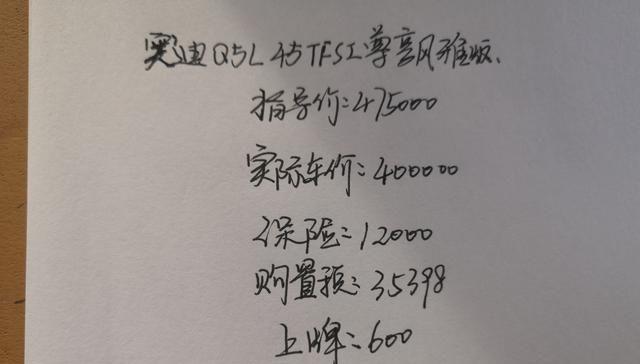 奥迪Q5L 45TFSI尊享风雅版、
指导价:475000
实际车价:400000
保险:12000
购置预:35398
上牌:600